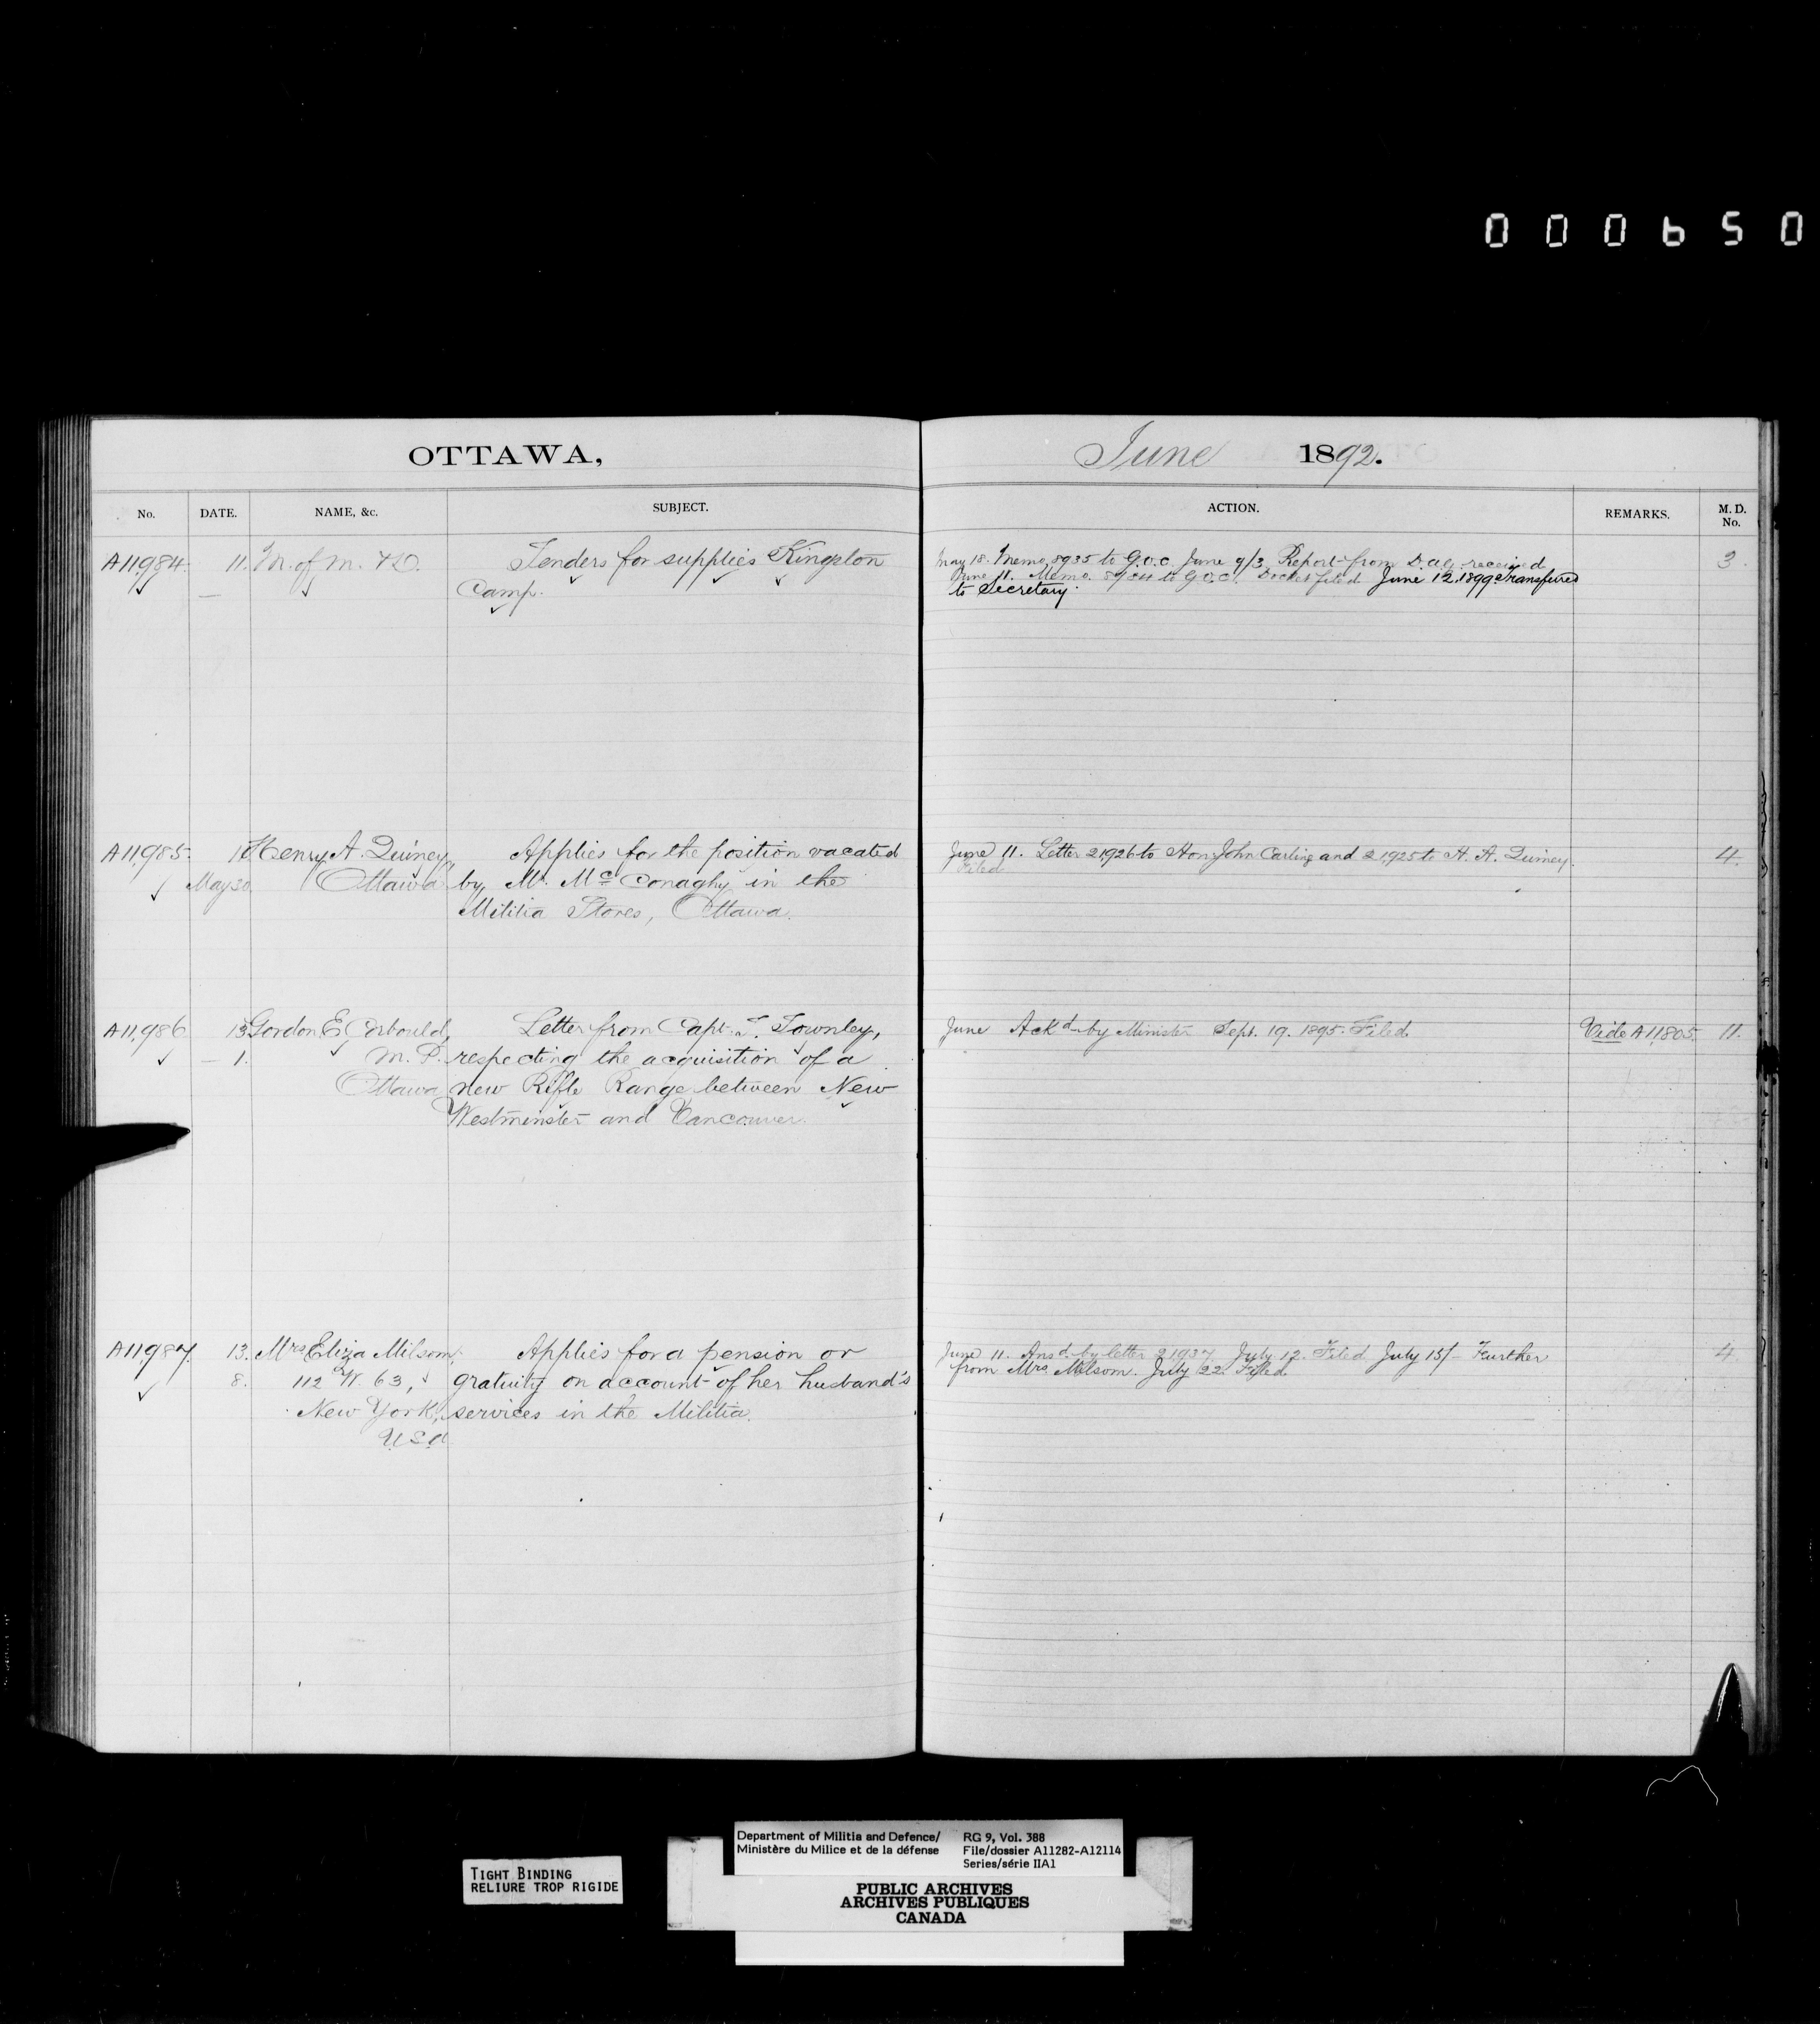 000650
OTTAWA, June 1892.
No. DATE. NAME, &c. SUBJECT. ACTION. REMARKS. M. D. No.
A11984. 11. M. of M. & D. Tenders for supplies Kingston
Camp.
May 18. Memo 8935 to G.O.C. June 9/3 Report from D.A.G. received
June 11. Memo. to G.O.C. Docket filed June 12. 1899 Transferred
to Secretary.
3.
A11985. Henry A. Quiney, Applies for the position vacated
May 30. Ottawa by Mr. McConaghy in the
Militia Stores, Ottawa.
June 11. Letter 21926 to Hon John Carling and 21925 to H. A. Quiney.
Filed
4.
A11986 13. Gordon E. Corbould, Letter from Capt. T. Townley,
1. M. P. respecting the acquisition of a
Ottawa new Rifle Range between New
Westminster and Vancouver.
June Ackd by Minister Sept. 19. 1895. Filed
Vide A11805. 11.
A11987. 13. Mrs Eliza Milsom, Applies for a pension or
8. 112 W. 63, gratuity on account of her husband's
New York, services in the Militia.
U.S.A
June 11. Ansd by letter 21937 July 12. Filed July 15/- Further
from Mrs Milsom. July 22. Filed
4
TIGHT BINDING
RELIURE TROP RIGIDE
Department of Militia and Defence/
Ministère du Milice et de la défense
RG 9, Vol. 388
File/dossier A11282-A12114
Series/série IIA1
PUBLIC ARCHIVES
ARCHIVES PUBLIQUES
CANADA